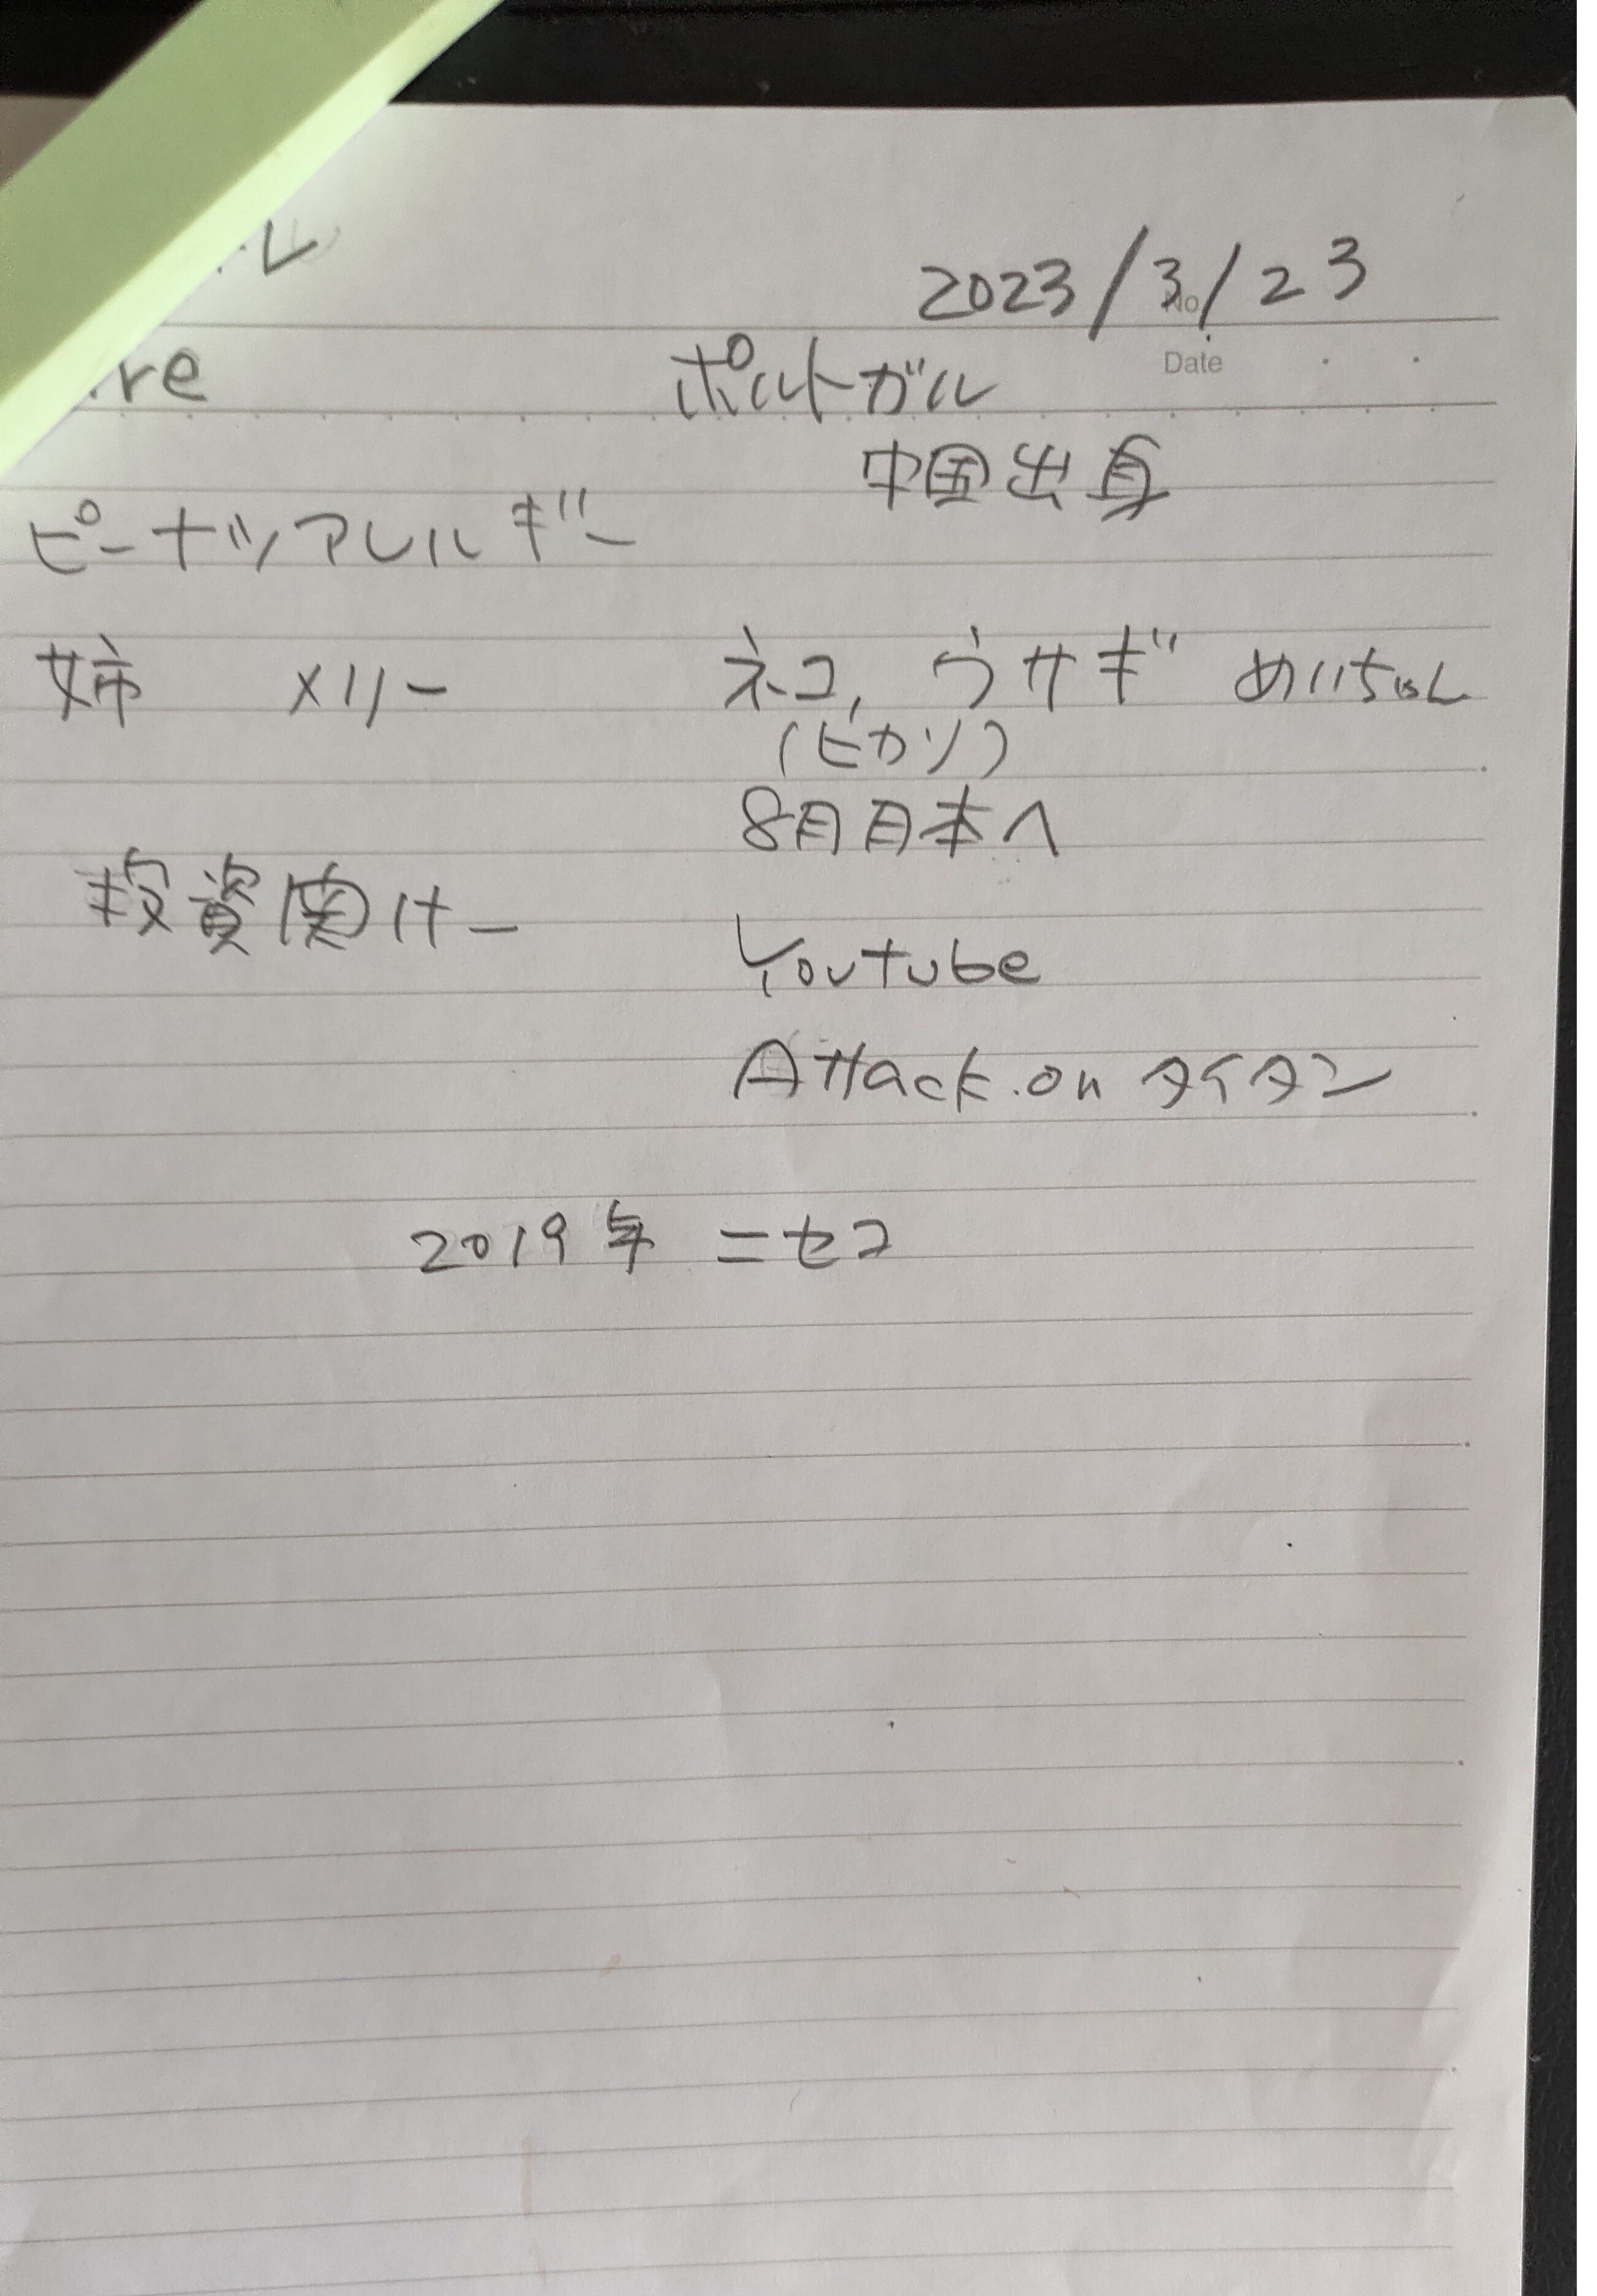 レ
2023/3/23
No
Date
re
ポルトガル
中国出身
ピーナッツアレルギー
姉 メリー
ネコ, ウサギ めいちゃん
(ピカソ)
8月日本へ
投資関けー
Youtube
Attack on タイタン
2019年 ニセコ